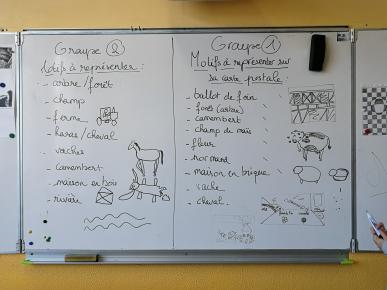 Groupe 2
Motifs à représenter :
- arbre / forêt
- champ
- ferme
- haras / cheval
- vaches
- camembert
- maison en bois
- rivière
Groupe 1
Motifs à représenter sur
sa carte postale :
- ballot de foin
- forêt (arbre)
- camembert
- champ de maïs
- fleur
- normand
- maison en brique
- vache
- cheval.